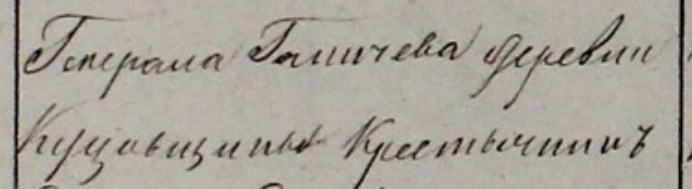 Генерала Галичева деревни
Куцовщины Крестьянинъ